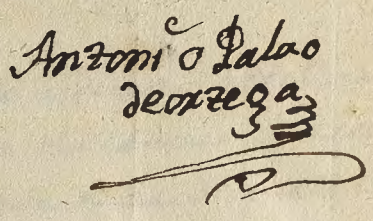 Antonio Palao
deortega